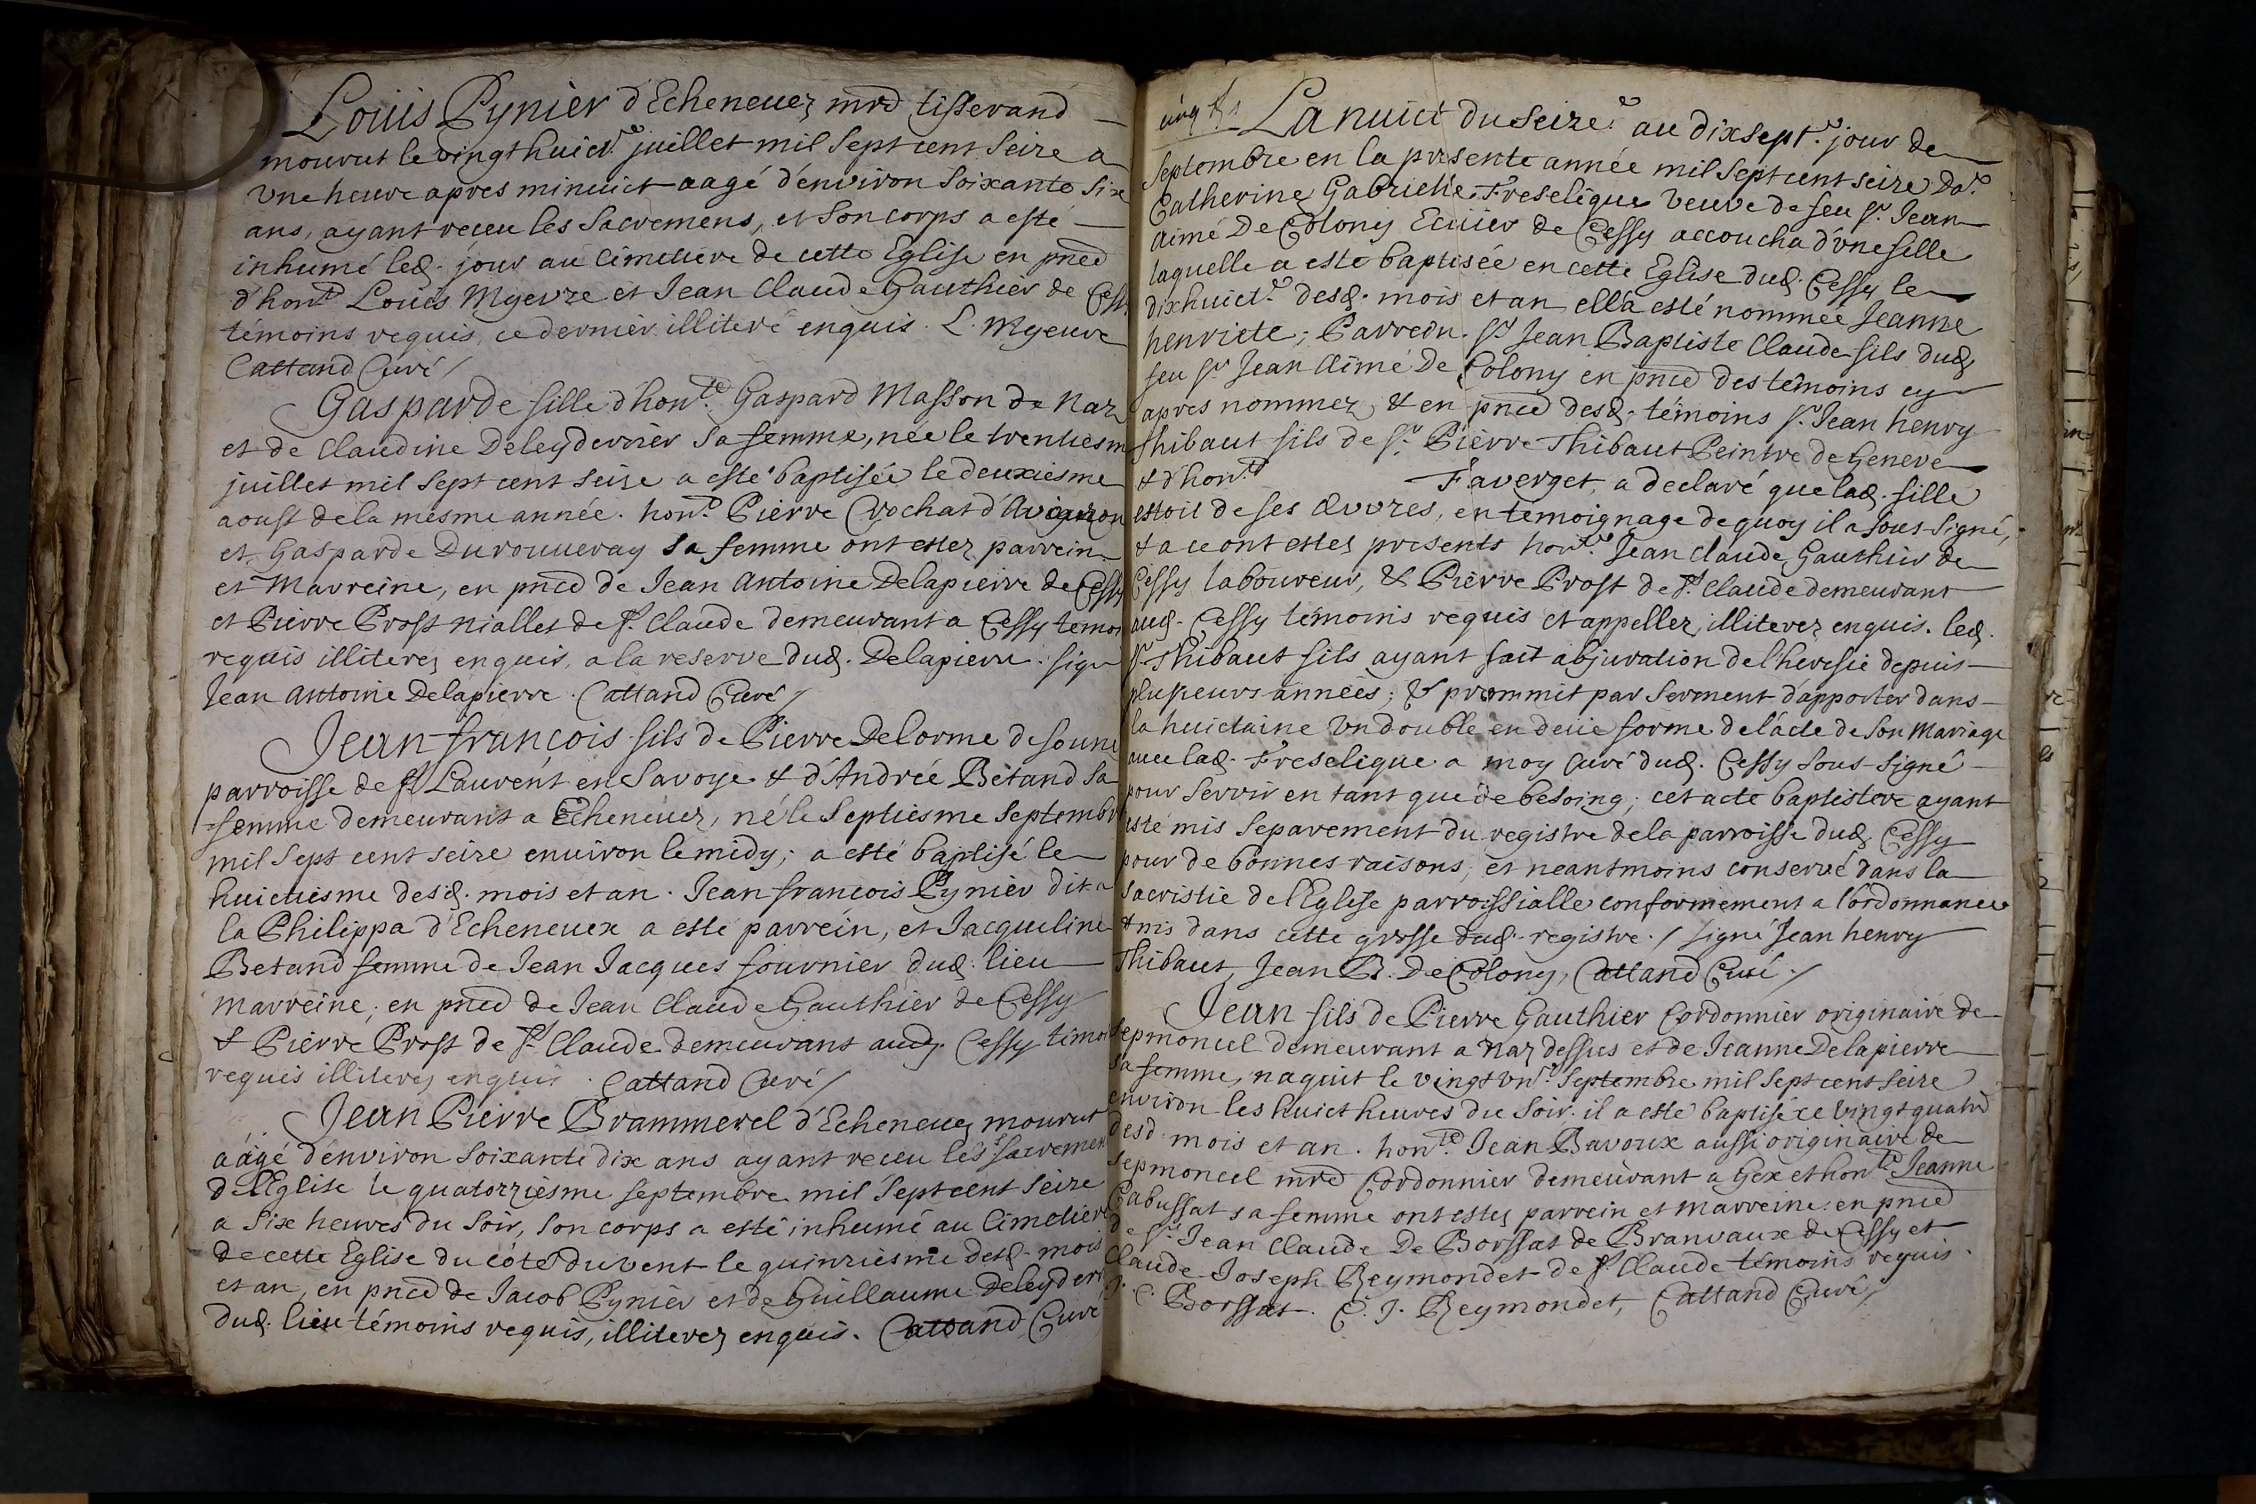 Louis Pynier d'Echenevez mrd tisserand
mourut le vingt huict.e juillet mil sept cent seize a
une heure apres minuict aagé d'environ soixante six
ans, ayant receu les sacremens, et son corps a esté
inhumé led. jour au cimetiere de cette Eglise en pnce
d'hon.te Louis Myevre et Jean Claude Gauthier de Cess
témoins requis, ce dernier illiteré enquis. L. Myeuvre
Cattand Curé /
Gasparde fille d'hon.te Gaspard Masson de Naz
et de Claudine Deleyderrier sa femme, née le trentiesm
juillet mil sept cent seize a esté baptisée le deuxiesme
aoust de la mesme année. hon.e Pierre Crochat d'Avouzon
et Gasparde Durouveray sa femme ont estez parrein
et Marreine, en pnce de Jean Antoine Delapierre de Cessy
et Pierre Prost niallet de St. Claude demeurant a Cessy temoi
requis illiterez enquis, a la reserve dud. Delapierre. sign
Jean Antoine Delapierre. Cattand Curé /
Jean françois fils de Pierre Delorme de soune
parroisse de St Laurent en Savoye & d'Andrée Bétand sa
femme demeurant a Echenevez, né le septiesme septembr
mil sept cent seize environ le midy; a esté baptisé le
huictiesme desd. mois et an. Jean françois Pynier dit a
la Philippa d'Echenevex a esté parrein, et Jacqueline
Betand femme de Jean Jacques fournier dud. lieu
marreine; en pnce de Jean Claude Gauthier de Cessy
& Pierre Prost de St Claude demeurant aud. Cessy témo
requis illiterez enquis. Cattand Curé /
Jean Pierre Brammerel d'Echenevez mourut
aâgé d'environ soixante dix ans ayant receu les sacremen
d'lEglise le quatorziesme septembre mil sept cent seize
a six heures du soir, son corps a esté inhumé au Cimetiere
de cette Eglise du côté du vent le quinziesme desd. mois
et an, en pnce de Jacob Pynier et de Guillaume Deleyderr
dud. lieu témoins requis, illiterez enquis. Cattand Curé
La nuict du seize.e au dix sept.e jour de
Septembre en la presente année mil sept cent seize Da.e
Catherine Gabrielle Freselique veuve de feu Sr. Jean
Aimé De Colony Ecuier de Cessy accoucha d'une fille
laquelle a esté baptisée en cette Eglise dud. Cessy le
dixhuict.e desd. mois et an ell'a esté nommée Jeanne
henriete; Parrein. Sr. Jean Baptiste Claude fils dud.
feu Sr Jean Aimé De Colony en pnce des témoins cy
apres nommez, & en pnce desd. témoins Sr. Jean henry
Thibaut fils de Sr. Pierre Thibaut Peintre de Geneve
& d'hon.te Faverget, a declaré que lad. fille
estoit de ses oeuvres, en temoignage de quoy il a sous signé,
& a ce ont estez presents hon.te Jean Claude Gauthier de
Cessy laboureur, & Pierre Prost de St. Claude demeurant
aud. Cessy témoins requis et appellez, illiterez enquis. led.
Sr Thibaut fils ayant fait abjuration de l'heresie depuis
plusieurs années; & prommit par serment d'apporter dans
la huictaine un double en deüe forme de l'acte de son Mariage
avec lad. Freselique a moy Curé dud. Cessy sous signé
pour servir en tant que de besoing; cet acte baptistere ayant
esté mis separement du registre de la parroisse dud. Cessy
pour de bonnes raisons; et neantmoins conservé dans la
sacristie de l'Eglise parroissialle conformement a l'ordonnance
& mis dans cette grosse dud. registre. / signé Jean henry
Thibaut, Jean B. De Colony, Cattand Curé /
Jean fils de Pierre Gauthier Cordonnier originaire de
sepmoncel demeurant a Naz dessus et de Jeanne Delapierre
sa femme, naquit le vingt un.e Septembre mil sept cent seize
environ les huict heures du soir. il a esté baptisé ce vingt quatre
desd. mois et an. hon.te Jean Bavoux aussi originaire de
sepmoncel mrd Cordonnier demeurant a Gex et hon.te Jeanne
Gabussat sa femme ont estez parrein et marreine en pnce
de Sr. Jean Claude De Borssat de Branvaux de Cessy et
Claude Joseph Reymondet de St. Claude témoins requis.
J. C. Borssat. C. J. Reymondet, Cattand Curé /